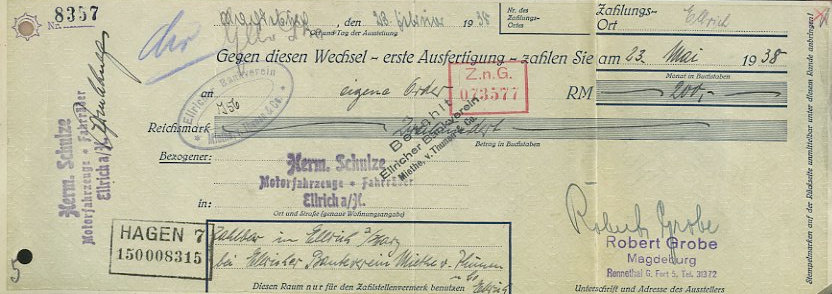 Nr. 8357
Magdeburg, den 23. Februar 1938
Ort und Tag der Ausstellung
Nr. des Zahlungs-Ortes
Zahlungs-Ort Ellrich
Gegen diesen Wechsel - erste Ausfertigung - zahlen Sie am 23. Mai 1938
Monat in Buchstaben
an eigene Order RM 200,-
Z.n.G.
073577
Ellrich Bankverein
Reichsmark Zweihundert
Betrag in Buchstaben
Bezahlt
Ellricher Bankverein
Miethe, v. Thumen & Co.
Bezogener: Herm. Schulze
Motorfahrzeuge * Fahrräder
in: Ellrich a/H.
Ort und Straße (genaue Wohnungsangabe)
Herm. Schulze
Motorfahrzeuge * Fahrräder
Ellrich a/H.
HAGEN 7
150008315
Zahlbar in Ellrich a/Harz
bei Ellricher Bankverein Miethe v. Thümen
& Co Ellrich
Diesen Raum nur für den Zahlstellenvermerk benutzen
Robert Grobe
Robert Grobe
Magdeburg
Rennethal G. Fort 5, Tel. 31372
Unterschrift und Adresse des Ausstellers
Stempelmarken auf der Rückseite unmittelbar unter diesem Rande anbringen!